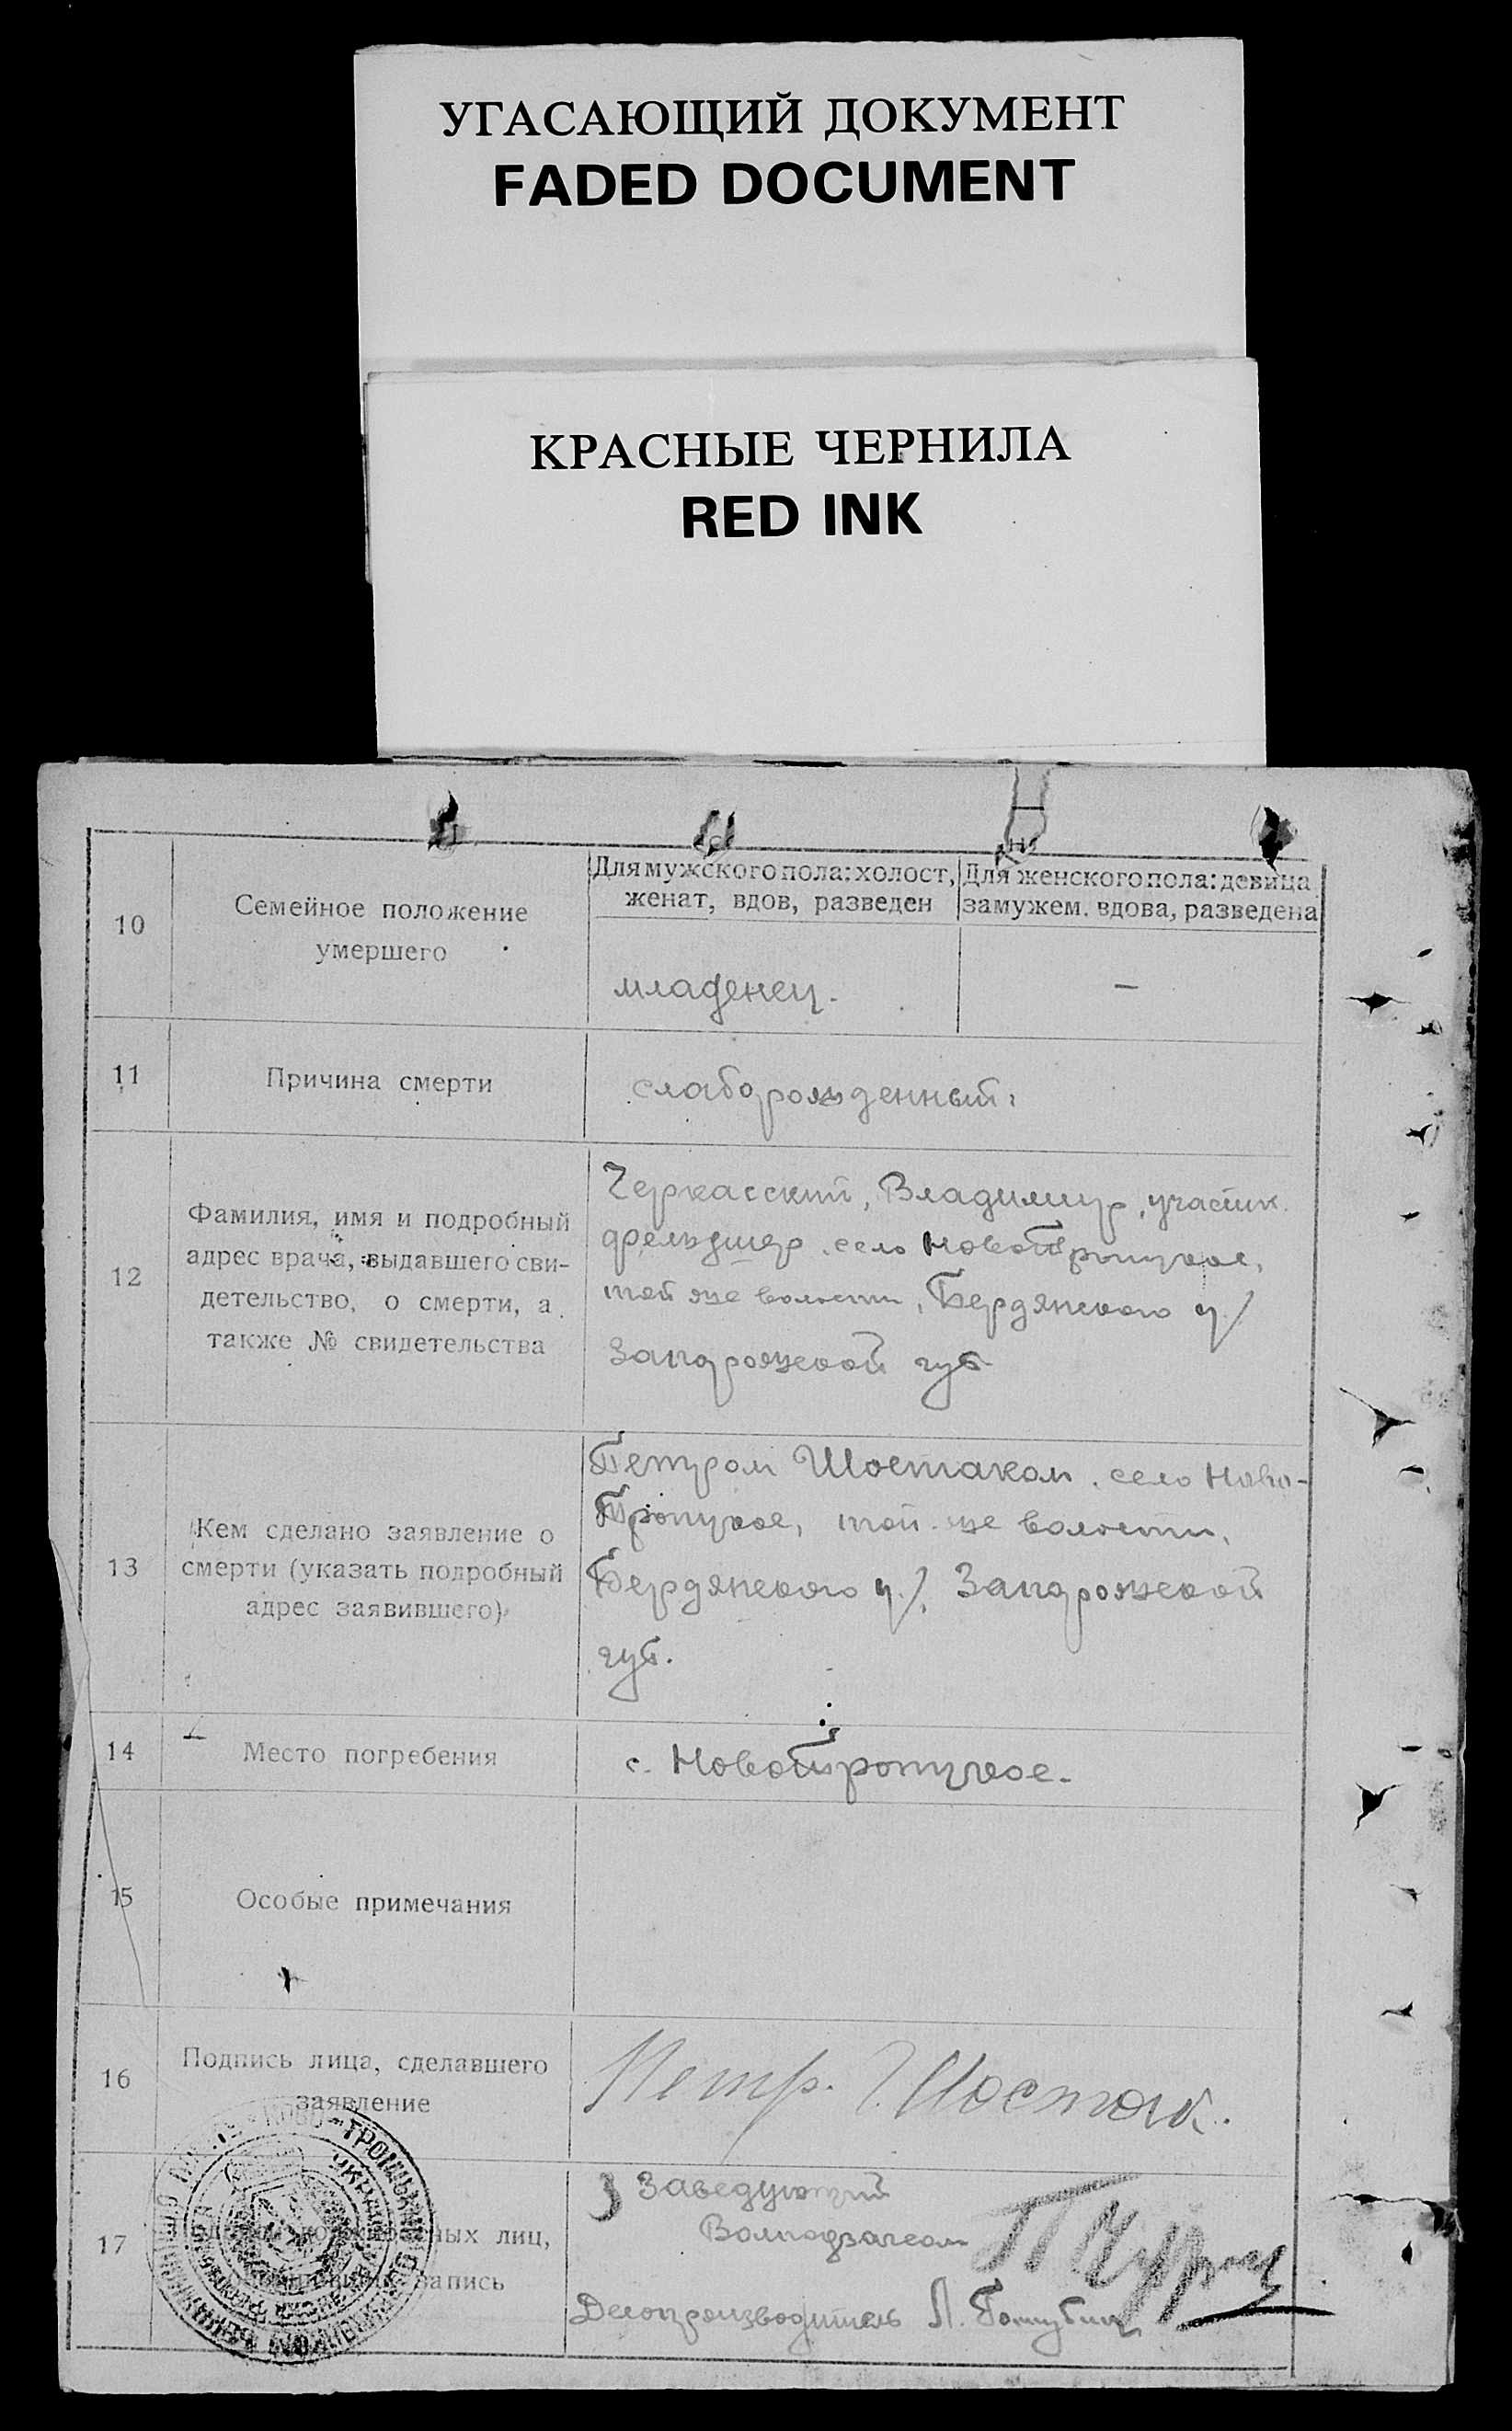 УГАСАЮЩИЙ ДОКУМЕНТ
FADED DOCUMENT
КРАСНЫЕ ЧЕРНИЛА
RED INK
10
Семейное положение
умершего
Для мужского пола: холост,
женат, вдов, разведен
Для женского пола: девица
замужем. вдова, разведена
младенец.
—
11
Причина смерти
слаборожденный.
12
Фамилия, имя и подробный
адрес врача, выдавшего сви-
детельство, о смерти, а
также № свидетельства
Черкасский, Владимир, участк.
фельдшер, село Новотроицкое,
той же волости, Бердянского у/
Запорожской губ.
13
Кем сделано заявление о
смерти (указать подробный
адрес заявившего)
Петром Шостаком, село Ново-
Троицкое, той же волости,
Бердянского у/, Запорожской
губ.
14
Место погребения
с. Новотроицкое.
15
Особые примечания
16
Подпись лица, сделавшего
заявление
Петр. Шостак.
17
лиц,
запись
Заведующий
Волподзагсом
Делопроизводитель П.